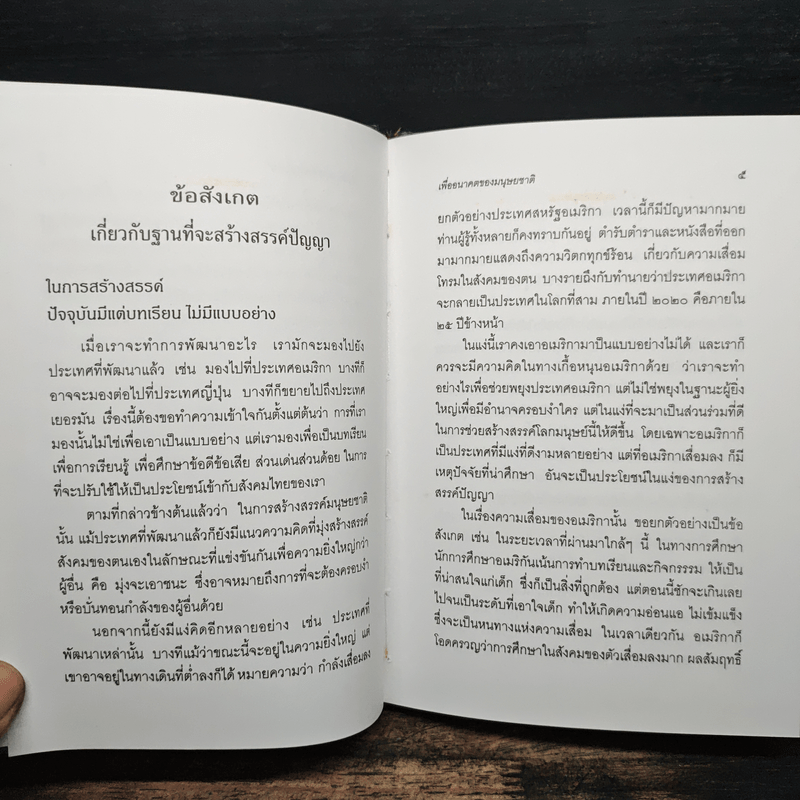 ข้อสังเกต
เกี่ยวกับฐานที่จะสร้างสรรค์ปัญญา
ในการสร้างสรรค์
ปัจจุบันมีแต่บทเรียน ไม่มีแบบอย่าง
เมื่อเราจะทำการพัฒนาอะไร เรามักจะมองไปยัง
ประเทศที่พัฒนาแล้ว เช่น มองไปที่ประเทศอเมริกา บางทีก็
อาจจะมองต่อไปที่ประเทศญี่ปุ่น บางทีก็ขยายไปถึงประเทศ
เยอรมัน เรื่องนี้ต้องขอทำความเข้าใจกันตั้งแต่ต้นว่า การที่เรา
มองนั้นไม่ใช่เพื่อเอาเป็นแบบอย่าง แต่เรามองเพื่อเป็นบทเรียน
เพื่อการเรียนรู้ เพื่อศึกษาข้อดีข้อเสีย ส่วนเด่นส่วนด้อย ในการ
ที่จะปรับใช้ให้เป็นประโยชน์เข้ากับสังคมไทยของเรา
ตามที่กล่าวข้างต้นแล้วว่า ในการสร้างสรรค์มนุษยชาติ
นั้น แม้ประเทศที่พัฒนาแล้วก็ยังมีแนวความคิดที่มุ่งสร้างสรรค์
สังคมของตนเองในลักษณะที่แข่งขันกันเพื่อความยิ่งใหญ่กว่า
ผู้อื่น คือ มุ่งจะเอาชนะ ซึ่งอาจหมายถึงการที่จะต้องครอบงำ
หรือบั่นทอนกำลังของผู้อื่นด้วย
นอกจากนี้ยังมีแง่คิดอีกหลายอย่าง เช่น ประเทศที่
พัฒนาเหล่านั้น บางทีแม้ว่าขณะนี้จะอยู่ในความยิ่งใหญ่ แต่
เขาอาจอยู่ในทางเดินที่ต่ำลงก็ได้ หมายความว่า กำลังเสื่อมลง
เพื่ออนาคตของมนุษยชาติ ๕
ยกตัวอย่างประเทศสหรัฐอเมริกา เวลานี้ก็มีปัญหามากมาย
ท่านผู้รู้ทั้งหลายก็คงทราบกันอยู่ ตำรับตำราและหนังสือที่ออก
มามากมายแสดงถึงความวิตกทุกข์ร้อน เกี่ยวกับความเสื่อม
โทรมในสังคมของตน บางรายถึงกับทำนายว่าประเทศอเมริกา
จะกลายเป็นประเทศในโลกที่สาม ภายในปี ๒๐๒๐ คือภายใน
๒๕ ปีข้างหน้า
ในแง่นี้เราคงเอาอเมริกามาเป็นแบบอย่างไม่ได้ และเราก็
ควรจะมีความคิดในทางเกื้อหนุนอเมริกาด้วย ว่าเราจะทำ
อย่างไรเพื่อช่วยพยุงประเทศอเมริกา แต่ไม่ใช่พยุงในฐานะผู้ยิ่ง
ใหญ่เพื่อมีอำนาจครอบงำใคร แต่ในแง่ที่จะมาเป็นส่วนร่วมที่ดี
ในการช่วยสร้างสรรค์โลกมนุษย์นี้ให้ดีขึ้น โดยเฉพาะอเมริกาก็
เป็นประเทศที่มีแง่ที่ดีงามหลายอย่าง แต่ที่อเมริกาเสื่อมลง ก็มี
เหตุปัจจัยที่น่าศึกษา อันจะเป็นประโยชน์ในแง่ของการสร้าง
สรรค์ปัญญา
ในเรื่องความเสื่อมของอเมริกานั้น ขอยกตัวอย่างเป็นข้อ
สังเกต เช่น ในระยะเวลาที่ผ่านมาใกล้ๆ นี้ ในทางการศึกษา
นักการศึกษาอเมริกันเน้นการทำบทเรียนและกิจกรรม ให้เป็น
ที่น่าสนใจแก่เด็ก ซึ่งก็เป็นสิ่งที่ถูกต้อง แต่ตอนนี้ชักจะเกินเลย
ไปจนเป็นระดับที่เอาใจเด็ก ทำให้เกิดความอ่อนแอ ไม่เข้มแข็ง
ซึ่งจะเป็นหนทางแห่งความเสื่อม ในเวลาเดียวกัน อเมริกาก็
โอดครวญว่าการศึกษาในสังคมของตัวเสื่อมลงมาก ผลสัมฤทธิ์